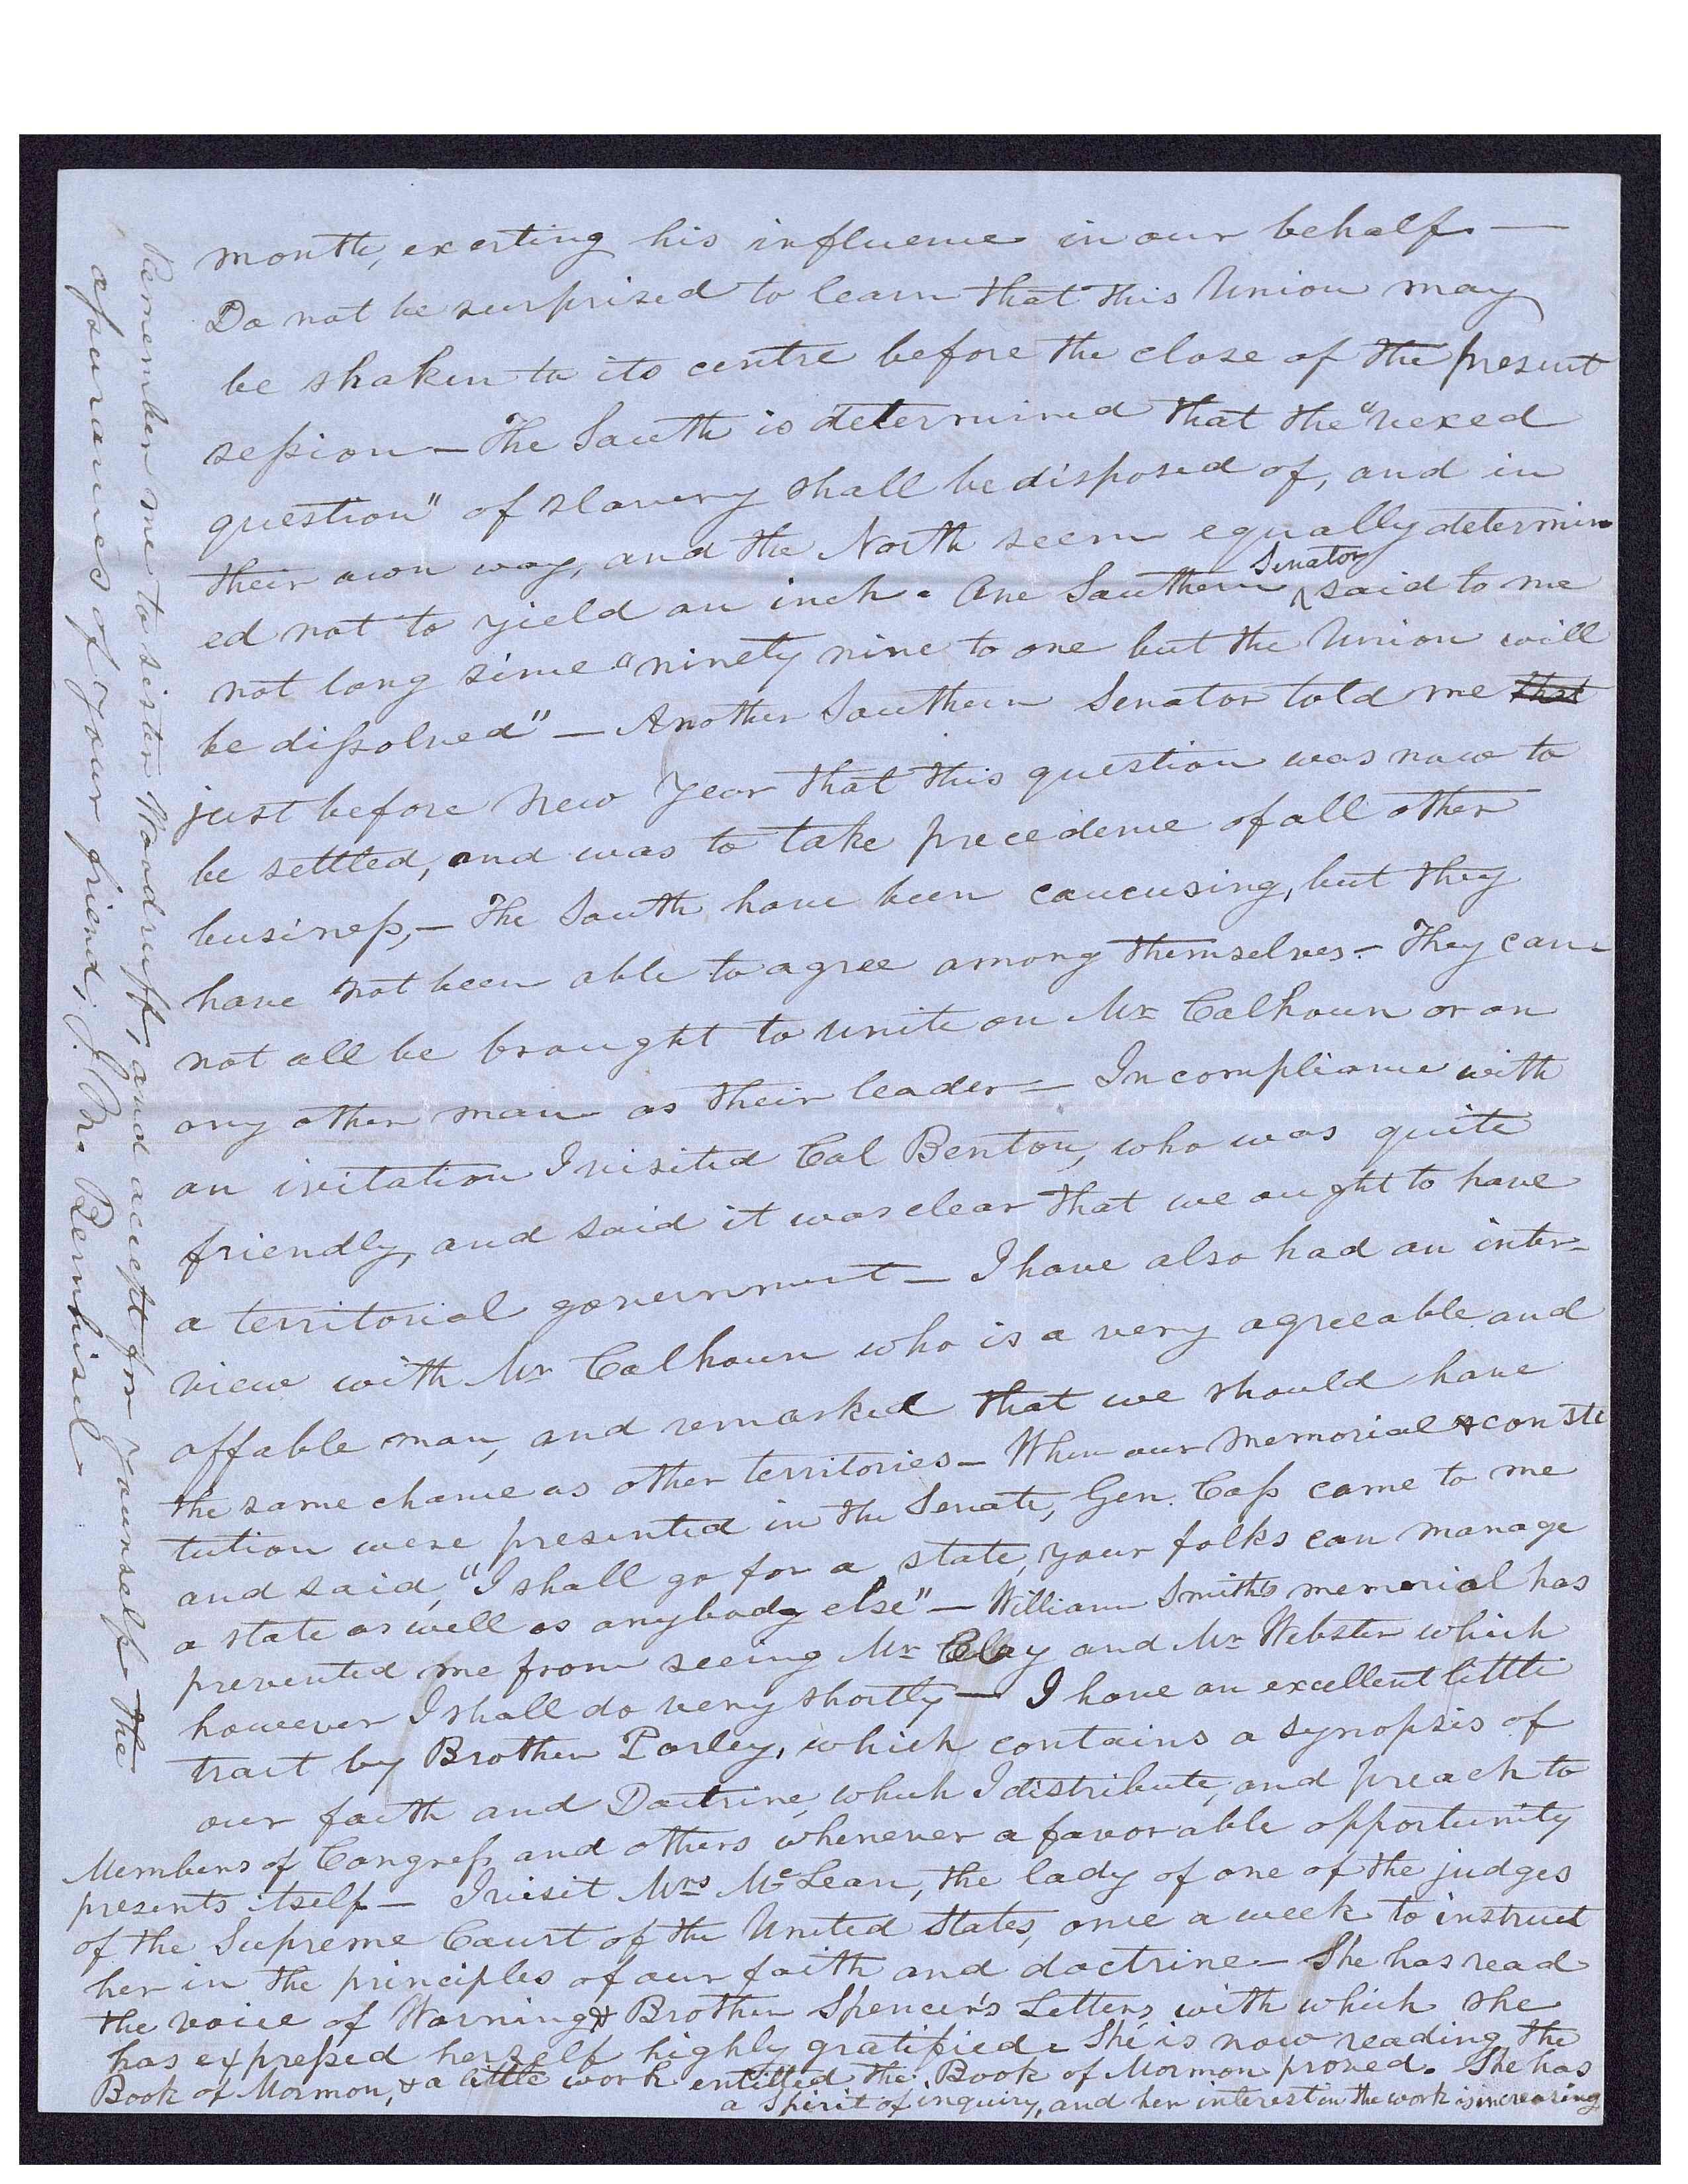 month, exerting his influence in our behalf. —
Do not be surprised to learn that this Union may
be shaken to its centre before the close of the present
session — The South is determined that the "vexed
question" of slavery shall be disposed of, and in
their own way, and the North seem equally determin
ed not to yield an inch. One Southern Senator said to me
not long since "ninety nine to one but the Union will
be dissolved" — Another Southern Senator told me that
just before New Year that this question was now to
be settled, and was to take precedence of all other
business, — The South have been caucusing, but they
have not been able to agree among themselves — They can-
not all be brought to unite on Mr Calhoun or on
any other man as their leader — In compliance with
an invitation I visited Col Benton, who was quite
friendly, and said it was clear that we ought to have
a territorial government — I have also had an inter-
view with Mr Calhoun who is a very agreeable and
affable man, and remarked that we should have
the same chance as other territories — When our memorial & consti
tution were presented in the Senate, Gen. Cass came to me
and said, "I shall go for a state, your folks can manage
a state as well as anybody else" — William Smith's memorial has
prevented me from seeing Mr Clay and Mr Webster which
however I shall do very shortly — I have an excellent little
tract by Brother Parley, which contains a synopsis of
our faith and Doctrine, which I distribute, and preach to
Members of Congress and others whenever a favorable opportunity
presents itself — I visit Mrs McLean, the lady of one of the judges
of the Supreme Court of the United States, once a week to instruct
her in the principles of our faith and doctrine — She has read
the voice of Warning & Brother Spencer's Letters, with which she
has expressed herself highly gratified. She is now reading the
Book of Mormon, & a little work entitled the Book of Mormon proved. She has
a spirit of inquiry, and her interest in the work is increasing
Remember me to sister Woodruff, and accept for yourself the
assurances of your friend, J. M. Bernhisel